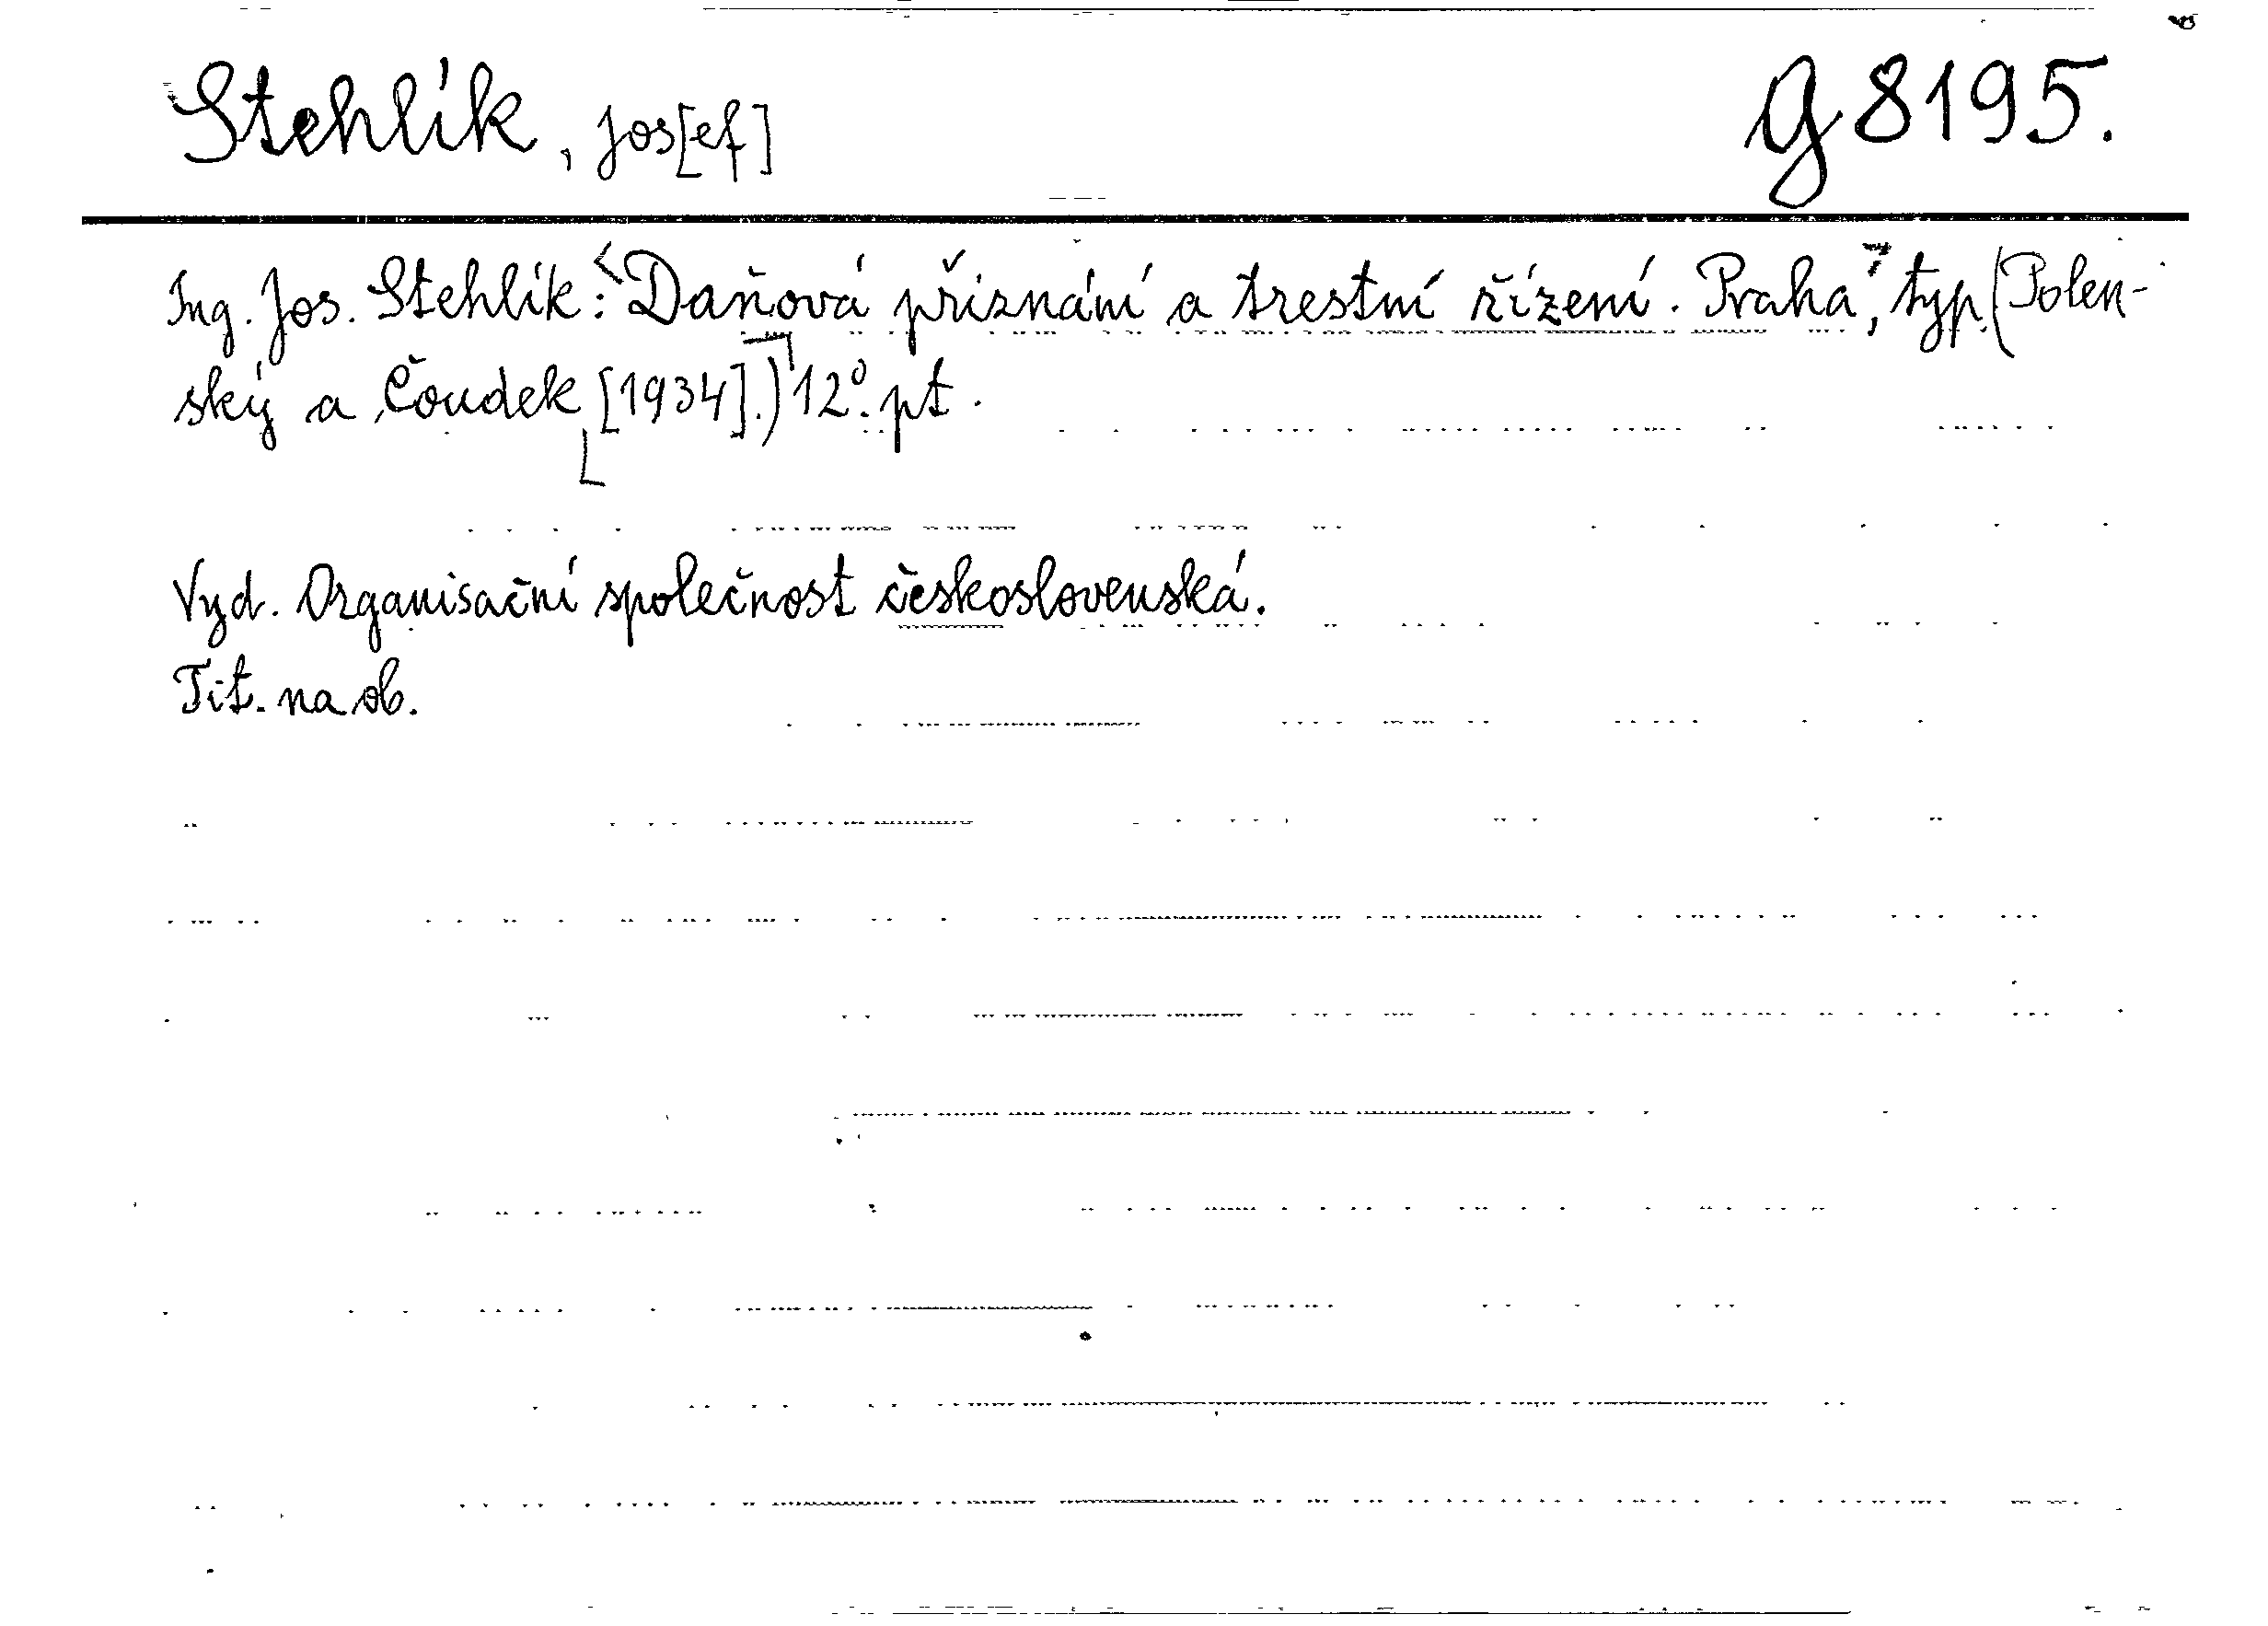 Stehlík, Jos[ef]
g 8195.
Ing. Jos. Stehlík: Daňová přiznání a trestní řízení. Praha, typ. (Polen-
ský a Čoudek [1934].) 12°. pt.
Vyd. Organisační společnost československá.
Tit. na ob.